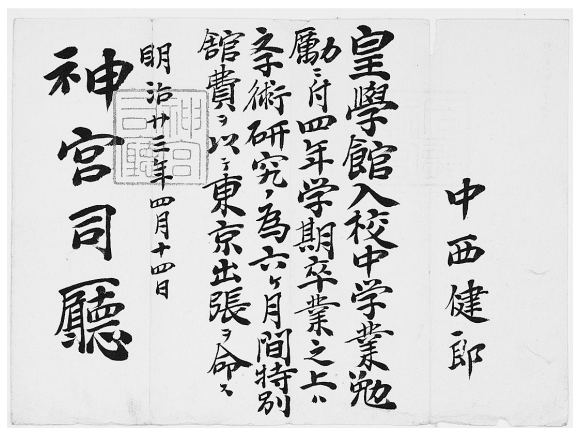 中西健郎
皇學館入校中学業勉
励ニ付四年学期卒業之上ハ
学術研究ノ為六ヶ月間特別
舘費ヲ以テ東京出張ヲ命ス
明治廿三年四月十四日
神宮司廳
神宮
司廳